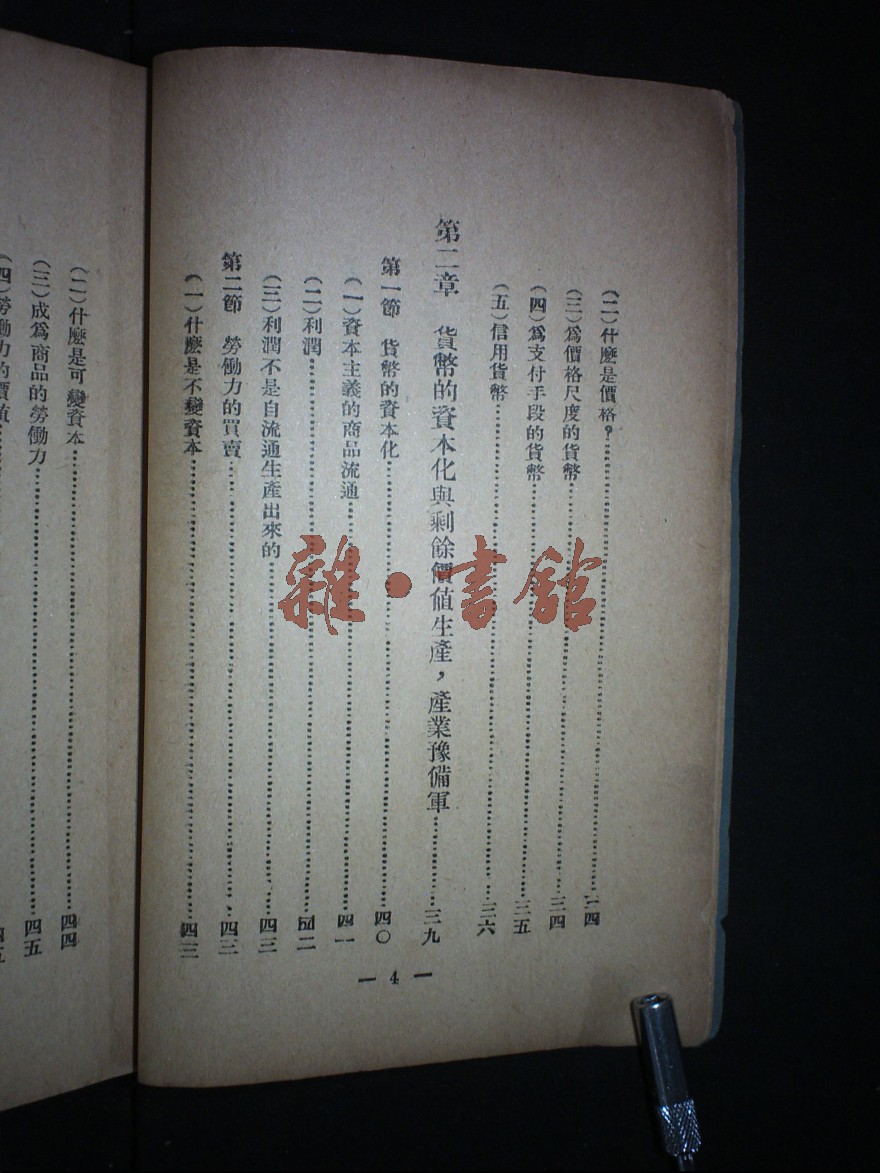 （二）什麽是價格？……二四
（三）爲價格尺度的貨幣……三四
（四）爲支付手段的貨幣……三五
（五）信用貨幣……三六
第二章　貨幣的資本化與剩餘價值生產，產業豫備軍……三九
第一節　貨幣的資本化……四〇
（一）資本主義的商品流通……四一
（二）利潤……四二
（三）利潤不是自流通生產出來的……四三
第二節　勞働力的買賣……四三
（一）什麽是不變資本……四三
— 4 —
（二）什麽是可變資本……四四
（三）成爲商品的勞働力……四五
（四）勞働力的價值……四五
雜·書館